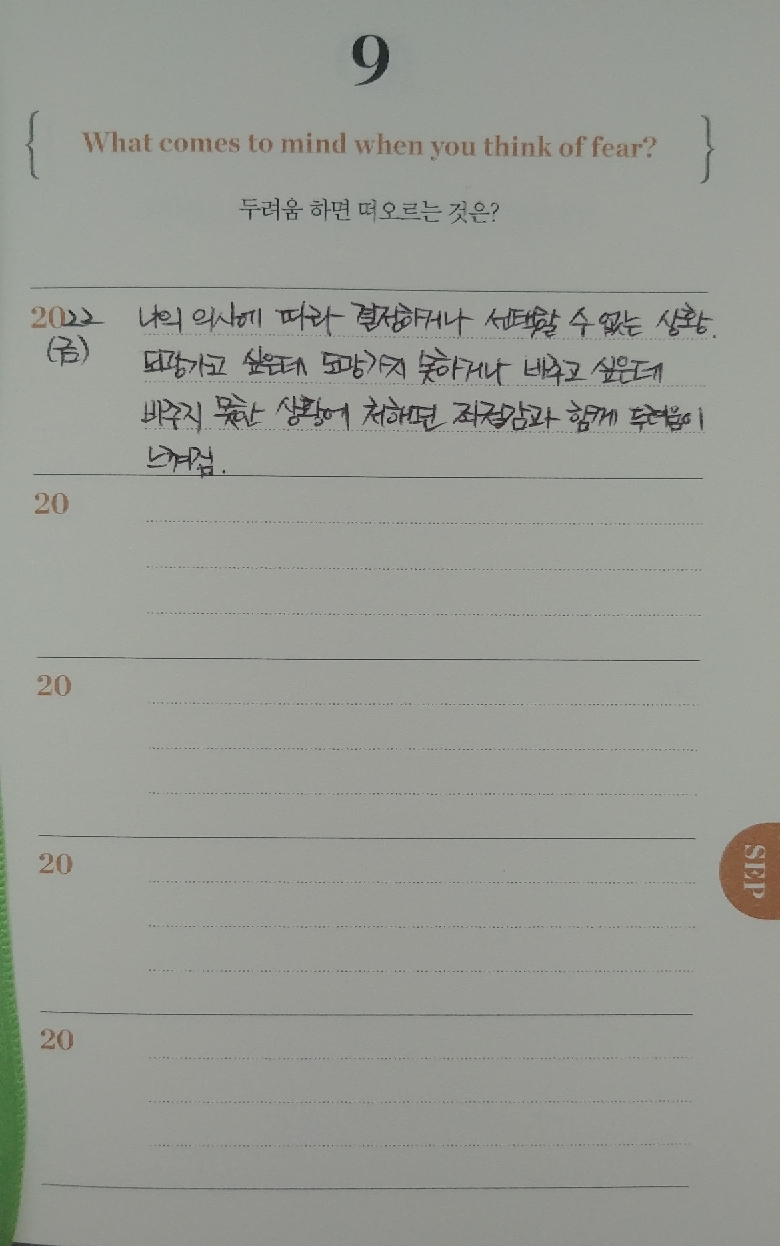 9
What comes to mind when you think of fear?
두려움 하면 떠오르는 것은?
2022 나의 의사에 따라 결정하거나 선택할 수 없는 상황.
(금) 도망가고 싶은데 도망가지 못하거나 멈추고 싶은데
멈추지 못한 상황에 처하면 좌절감과 함께 두려움이
느껴짐.
20
20
20
20
SEP